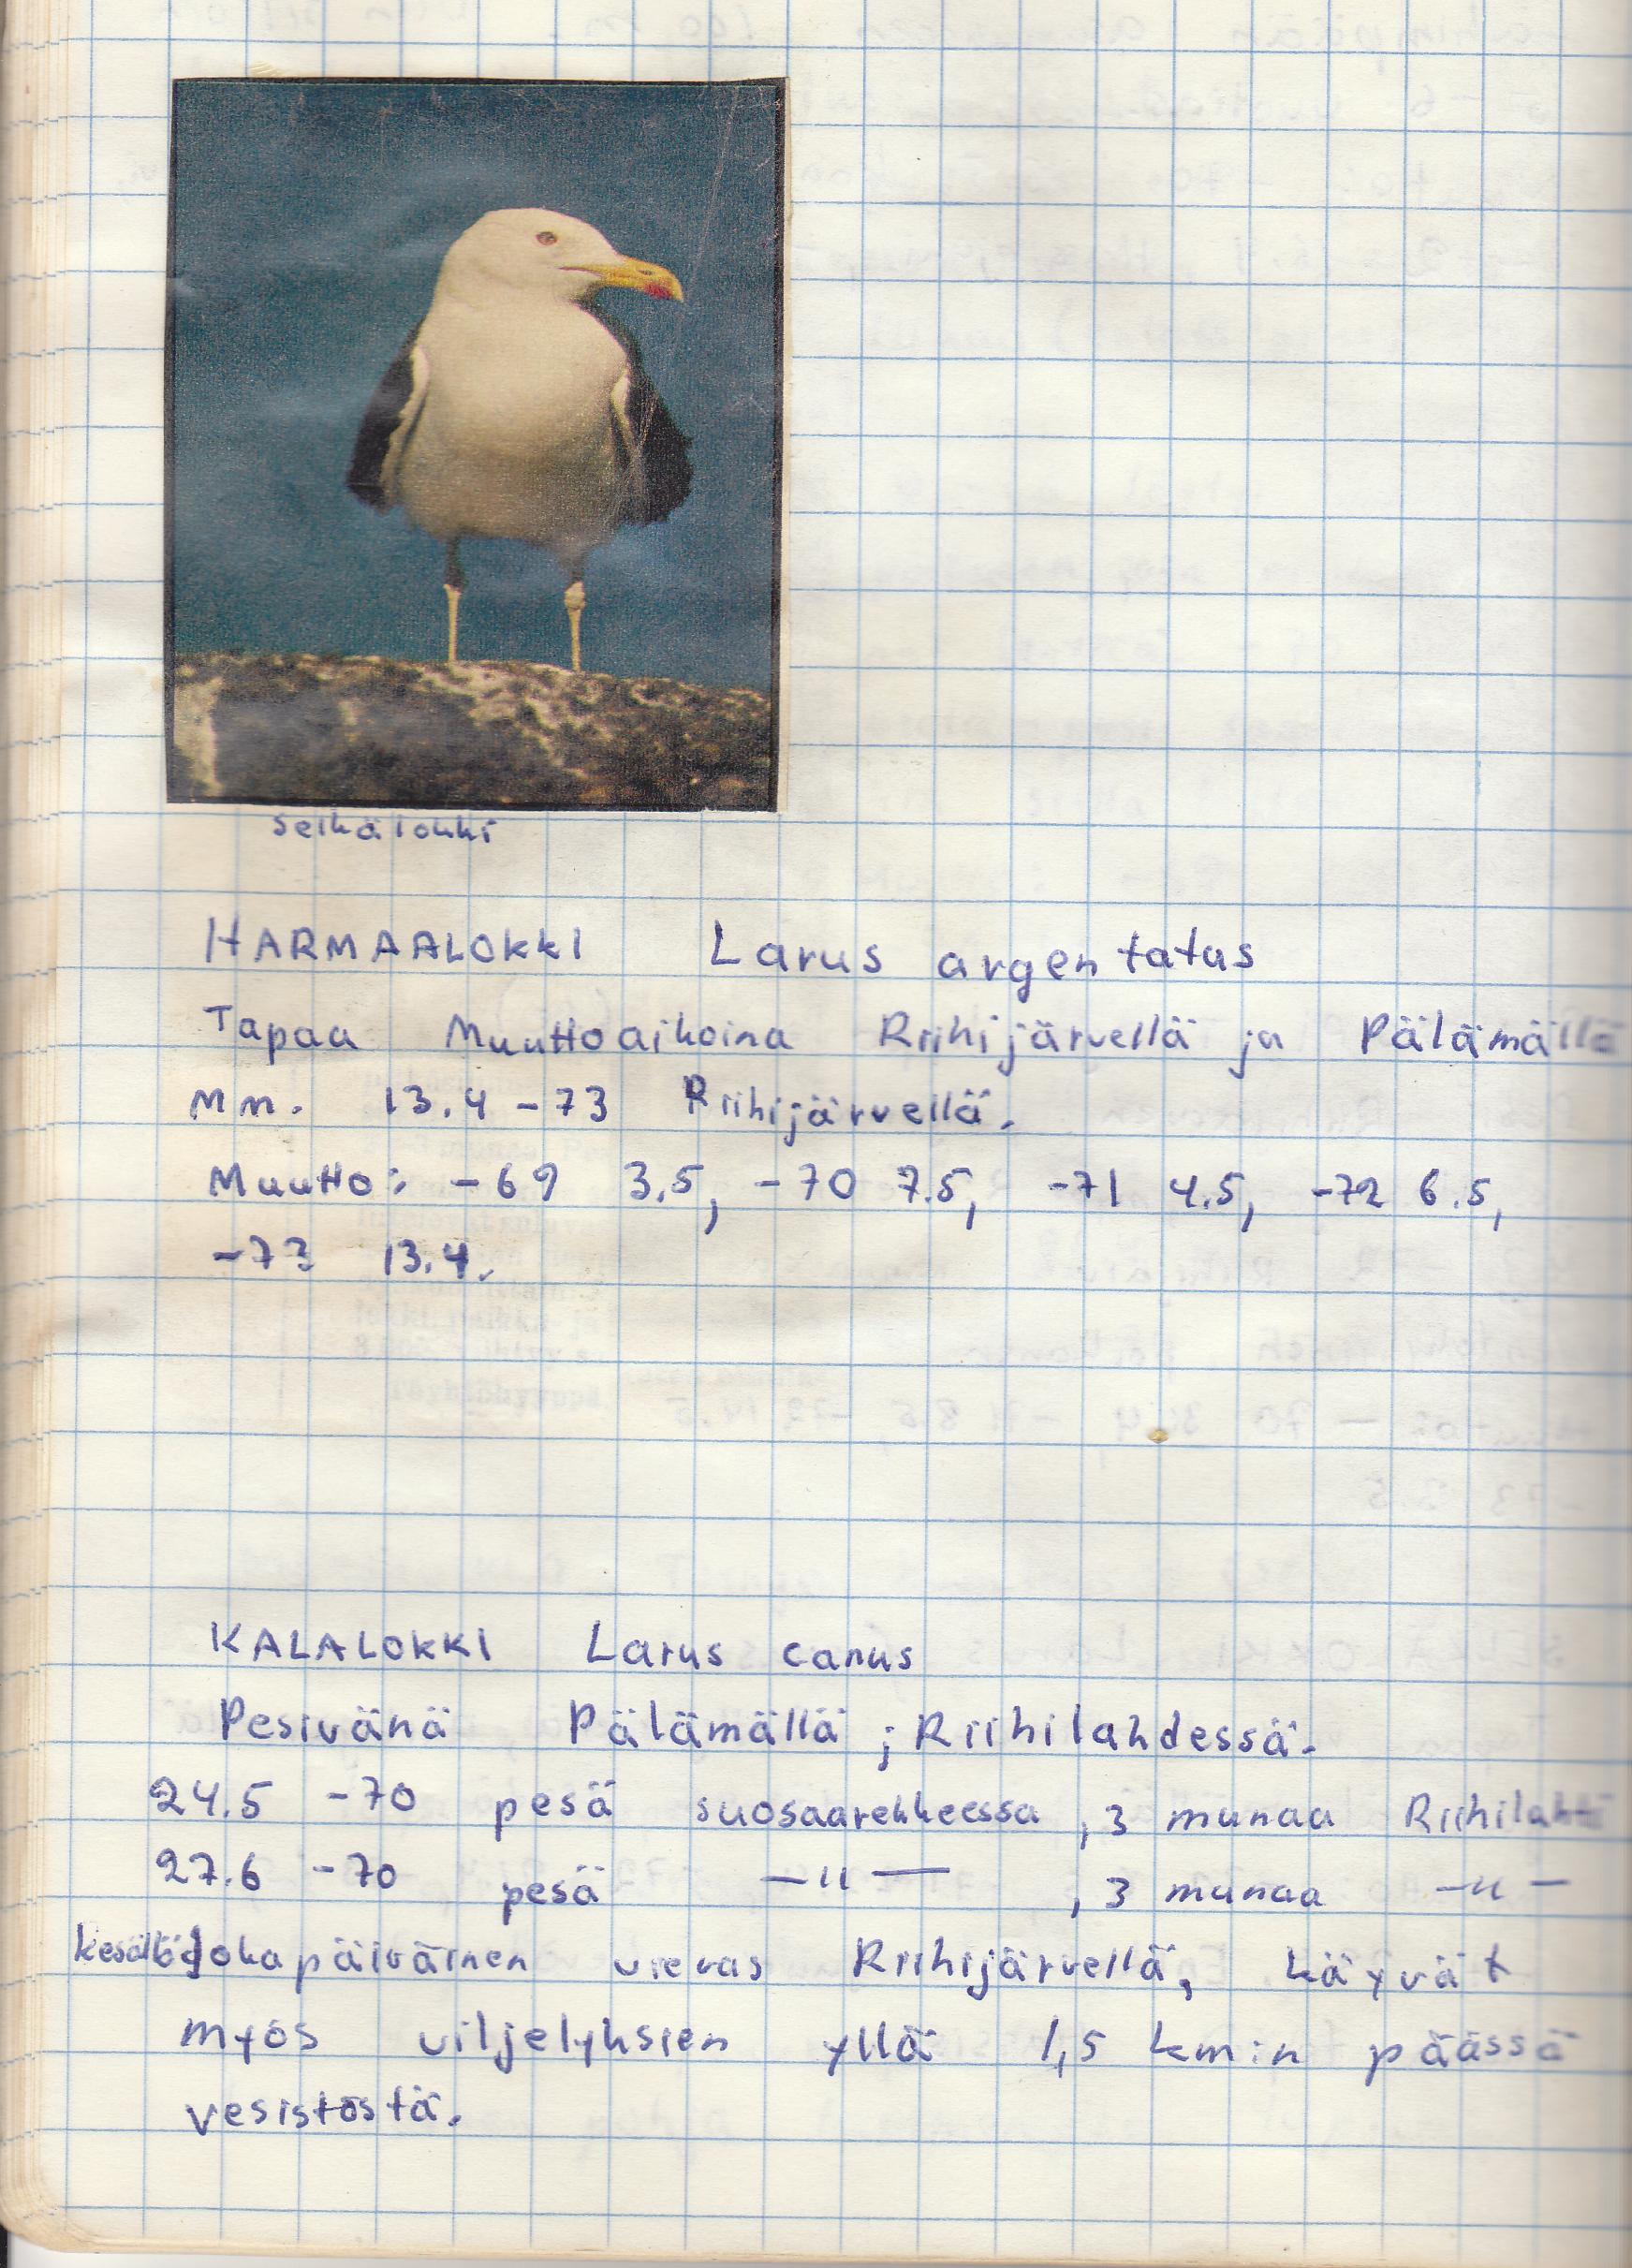 selkälokki
HARMAALOKKI Larus argentatus
Tapaa Muuttoaikoina Riihijärvellä ja Pälämällä
Mm. 13.4 -73 Riihijärvellä.
Muutto: -69 3.5, -70 7.5, -71 4.5, -72 6.5,
-73 13.4.
KALALOKKI Larus canus
Pesivänä Pälämällä ; Riihilahdessä.
24.5 -70 pesä suosaarekkeessa , 3 munaa Riihilahti
27.6 -70 pesä —"— , 3 munaa —"—
kesällä Jokapäiväinen vieras Riihijärvellä, käyvät
myös viljelyksien yllä 1,5 km:n päässä
vesistöstä.